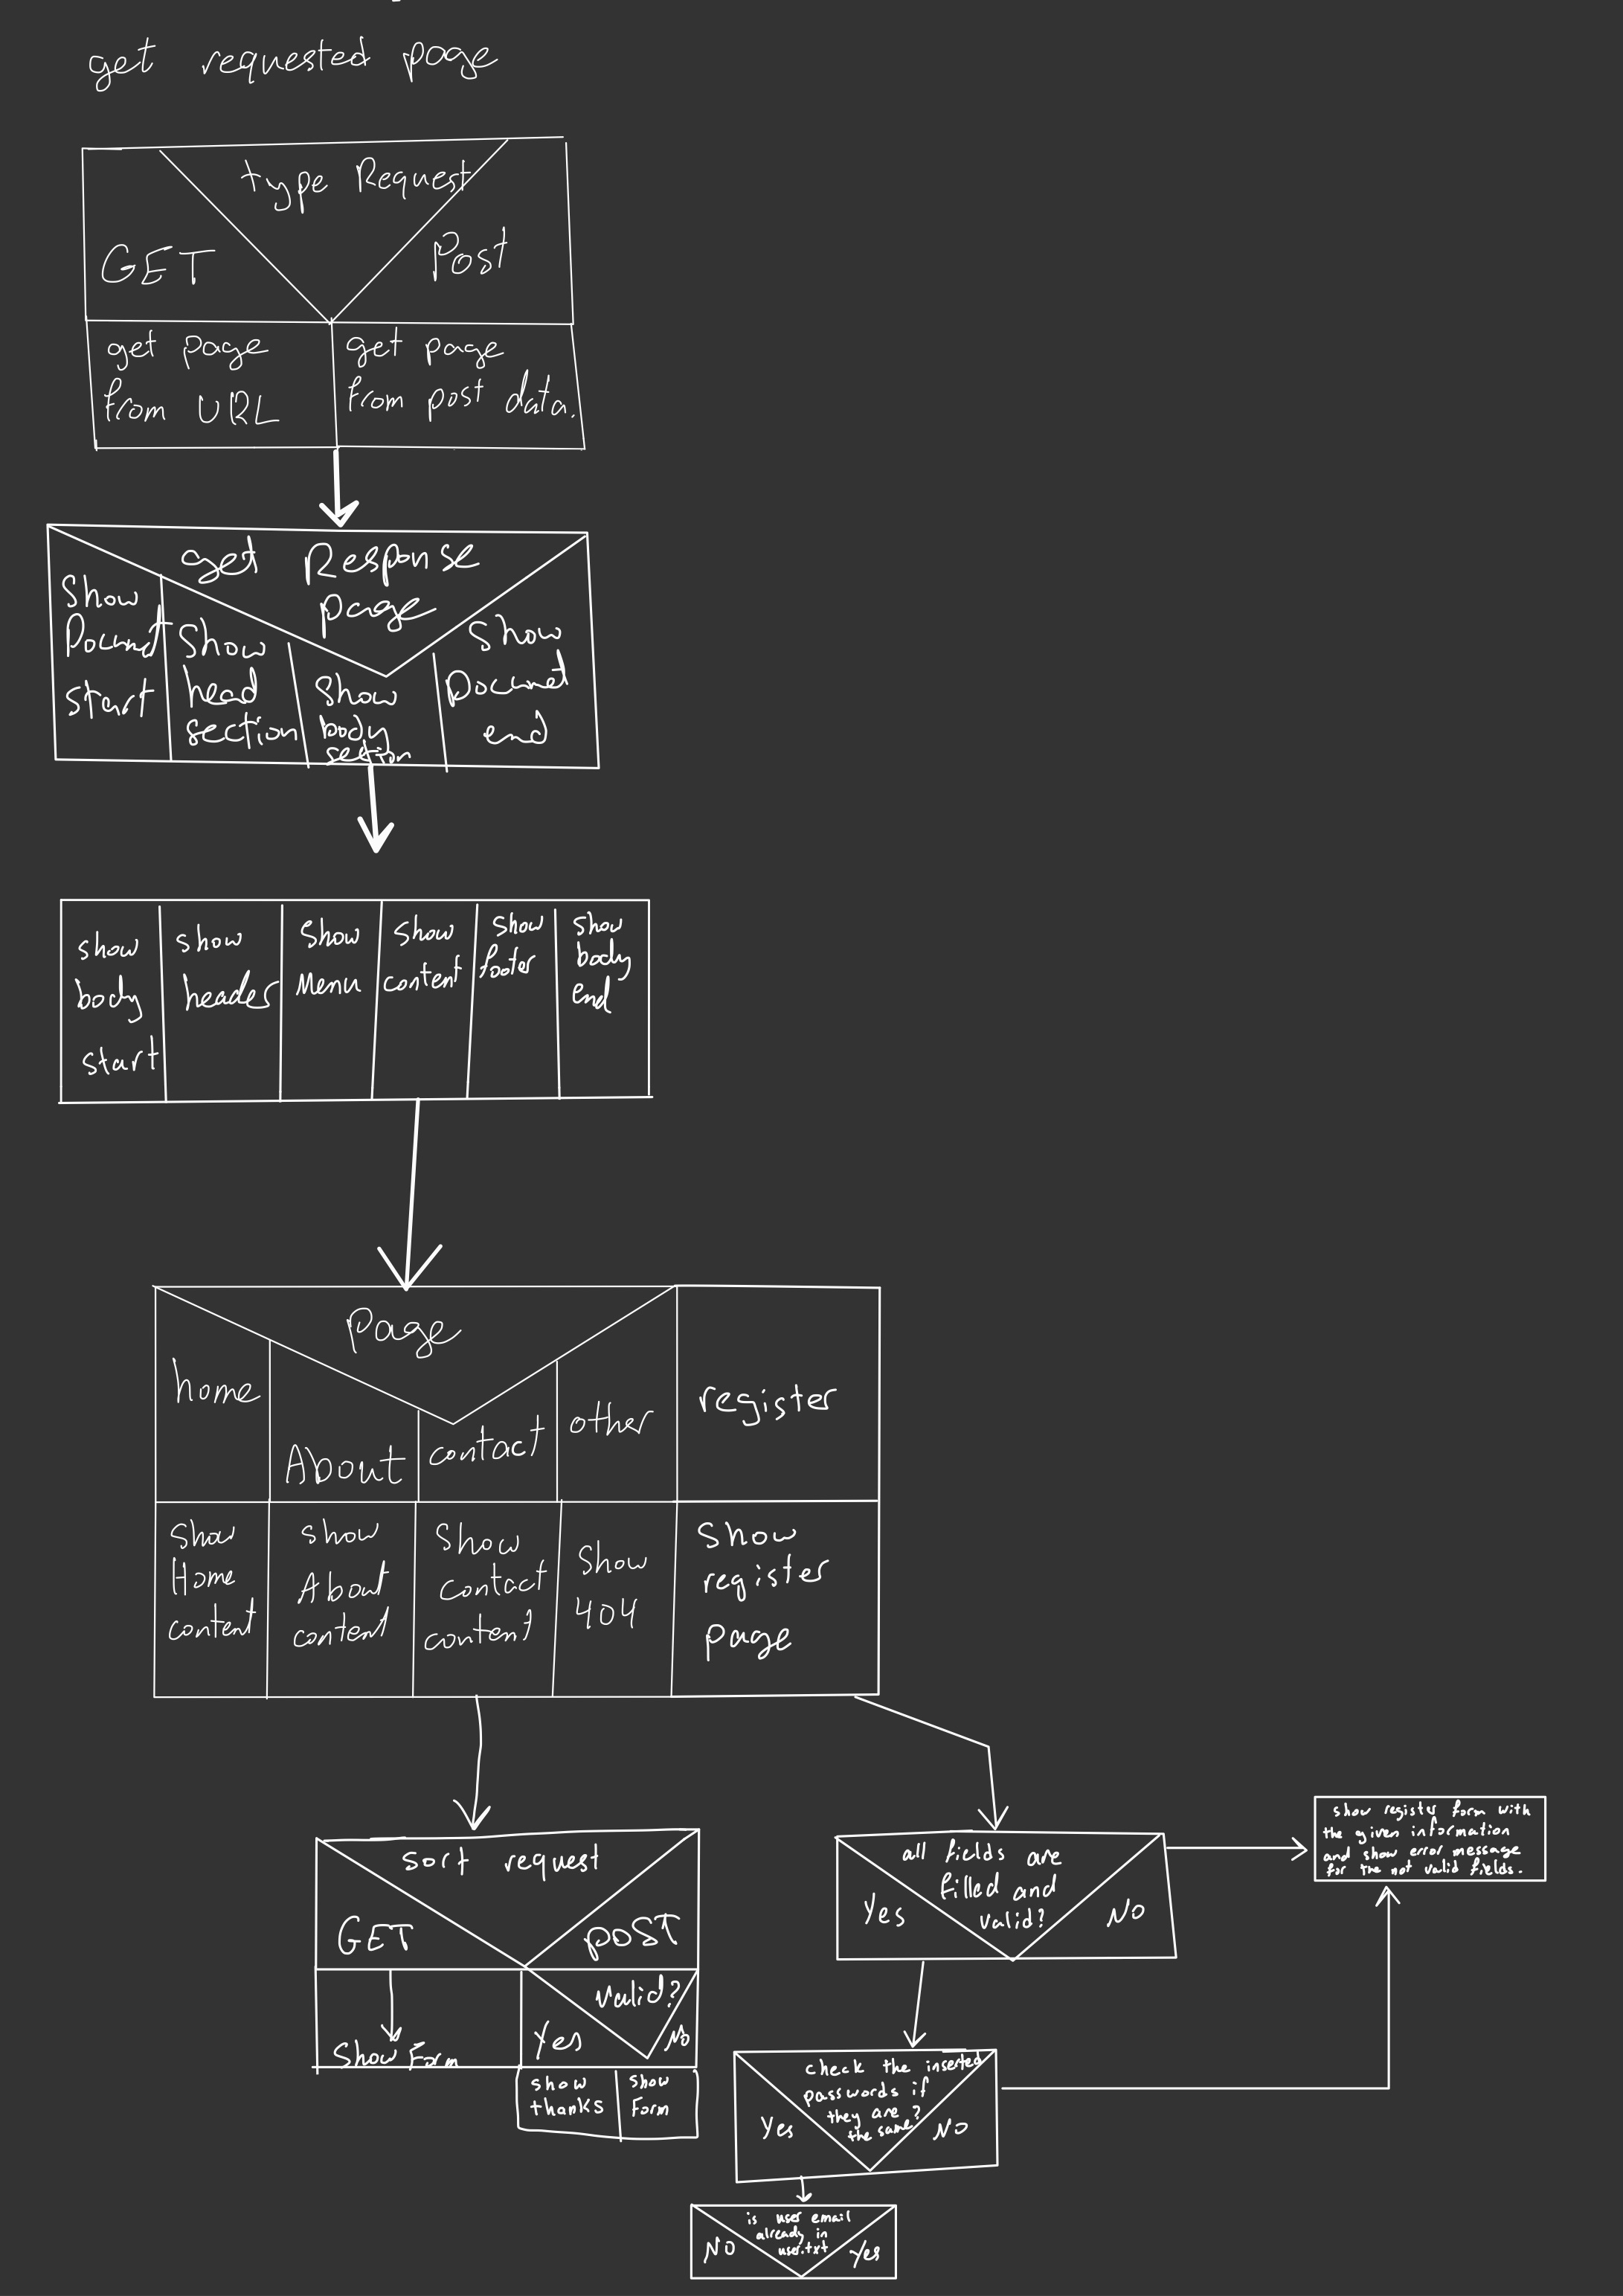 get requested page
type Request
GET
Post
get page
from URL
get page
from post data.
get Response
page
Show
start
Show
head
section
Show
body
section
Show
end
show
body
start
show
header
show
Menu
show
content
show
footer
show
body
end
Page
home
About
contact
other
register
show
Home
content
show
About
content
show
contact
content
show
404
show
register
page
sort request
GET
POST
Show Form
Valid?
Yes
No
show
thanks
show
form
all fields are
filled and
valid?
Yes
No
show register form with
the given information
and show error message
for the not valid fields.
check the inserted
passwords if
they are
the same?
Yes
No
is user email
already in
user.txt
No
Yes